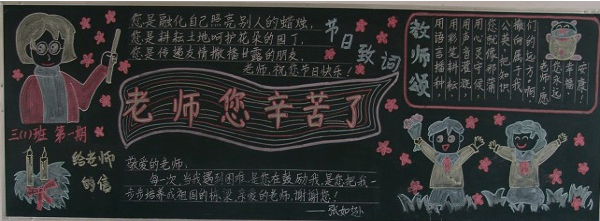 您是融化自己照亮别人的蜡烛,
您是耕耘土地呵护花朵的园丁,
您是传递友情撒播甘露的朋友,
老师,祝您节日快乐!
节日致词
老师您辛苦了
三(1)班 第一期
给老师的信
敬爱的老师:
每一次,当我遇到困难,是您在鼓励我,是您把我一
步步培养成祖国的栋梁,亲爱的老师,谢谢您!
——张如
教师颂
用语言播种
用彩笔耕耘,
用汗水浇灌,
用心血滋润,
您就像那
公关,把知识
撒向
们的远方。啊,
老师,愿
您永远
幸福,
安康!